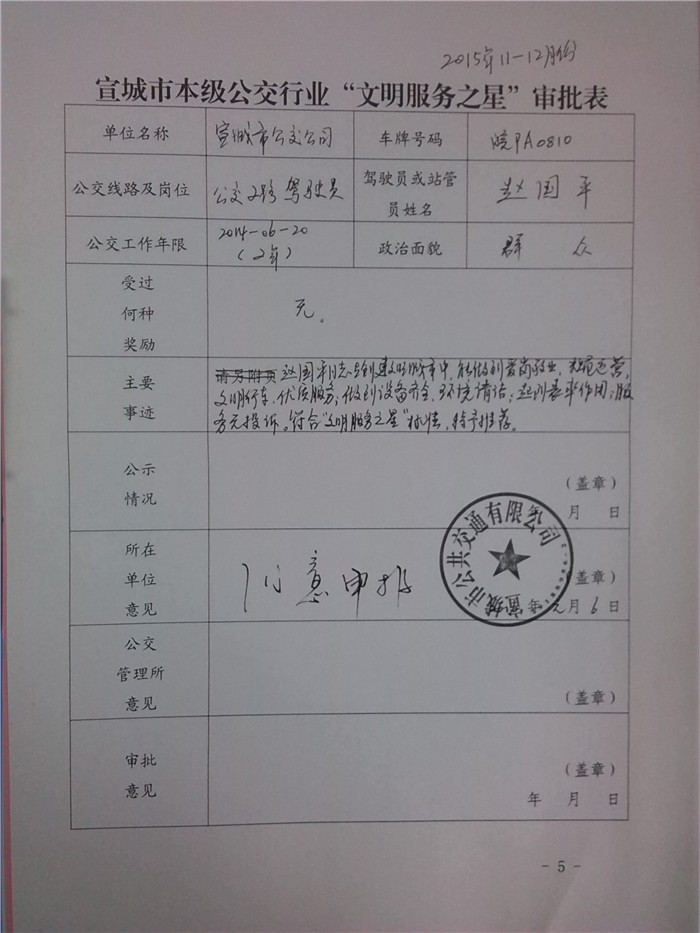 2015年11-12月份
宣城市本级公交行业“文明服务之星”审批表
单位名称 宣城市公交公司 车牌号码 皖PA0810
公交线路及岗位 公交2路 驾驶员 驾驶员或站管员姓名 赵国平
公交工作年限 2014-06-20（2年） 政治面貌 群众
受过
何种
奖励
无。
主要
事迹
请另附页 赵国平同志 中，能做到爱岗敬业，规范运营，
文明行车，优质服务；做到设备齐全，环境清洁；起到表率作用；服
务无投诉。符合“文明服务之星”标准，特予推荐。
公示
情况
（盖章）
月 日
所在
单位
意见
同意申报
宣城市公共交通有限公司
（盖章）
年 元月6日
公交
管理所
意见
（盖章）
审批
意见
（盖章）
年 月 日
- 5 -